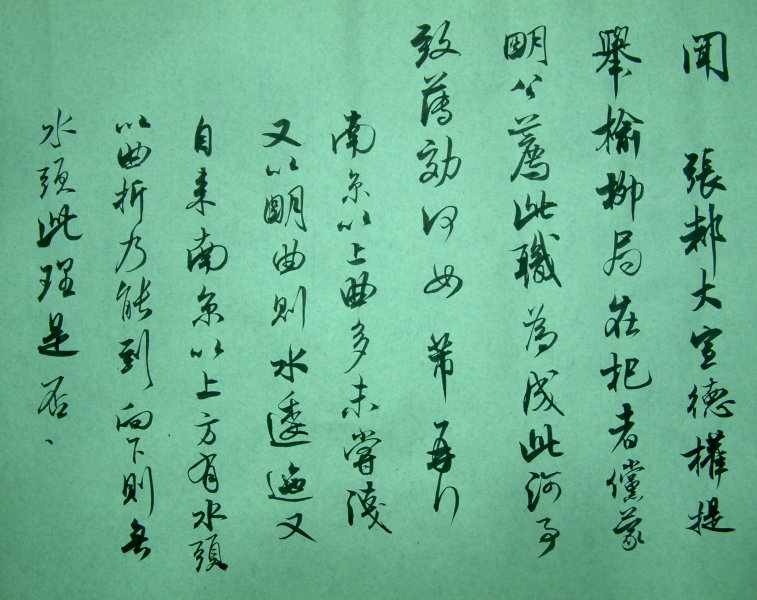 聞 張都大宣德權提
舉榆柳局在杞者儻蒙
明公薦此職為成此河事
致薄効何如 芾再行
南京以上曲多未嘗淺
又以明曲則水逶迤又
自来南京以上方有水頭
以曲折乃能到向下則無
水頭此理是否、